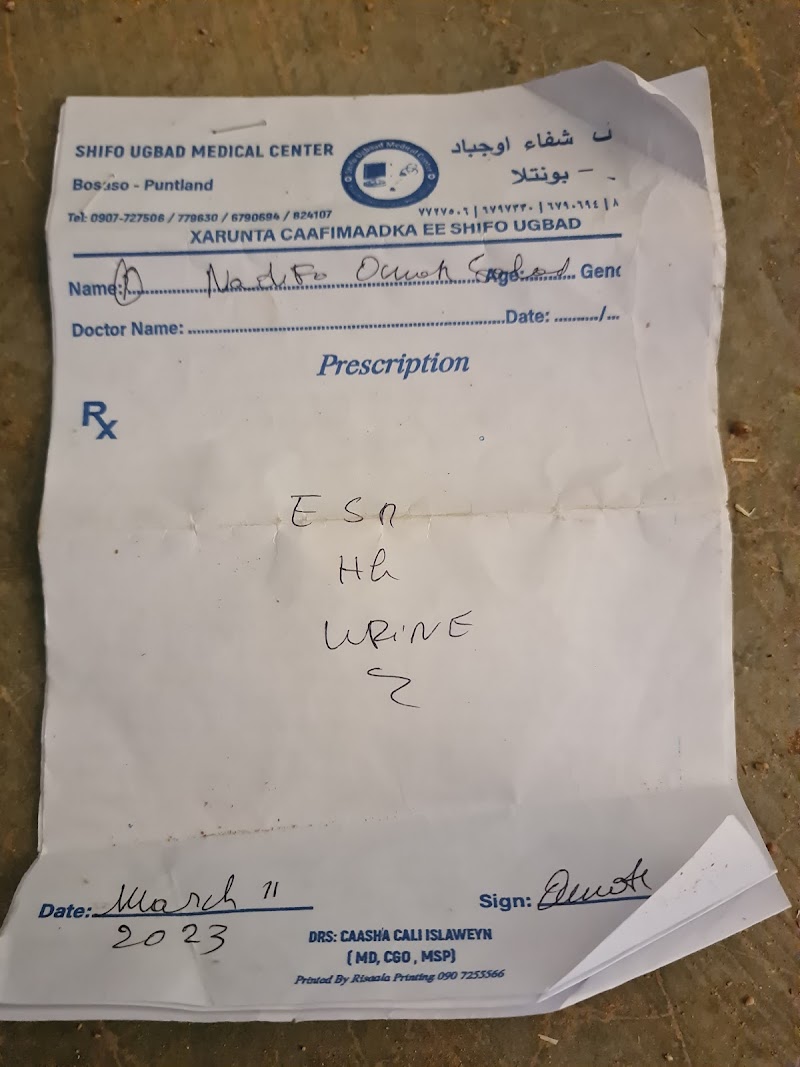 SHIFO UGBAD MEDICAL CENTER
شفاء اوجباد
Bosaso - Puntland
- بونتلا
Tel: 0907-727506 / 779630 / 6790694 / 824107
٧٢٧٥٠٦ | ٦٧٩٧٣٣٠ | ٦٧٩٠٦٩٤ | ٨
XARUNTA CAAFIMAADKA EE SHIFO UGBAD
Name: Nadifo Age: Gend
Doctor Name: Date: /
Prescription
Rx
ESR
Hb
URINE
Date: March 11
2023
Sign:
DRS: CAASHA CALI ISLAWEYN
( MD, CGO , MSP)
Printed By Risaala Printing 090 7255566